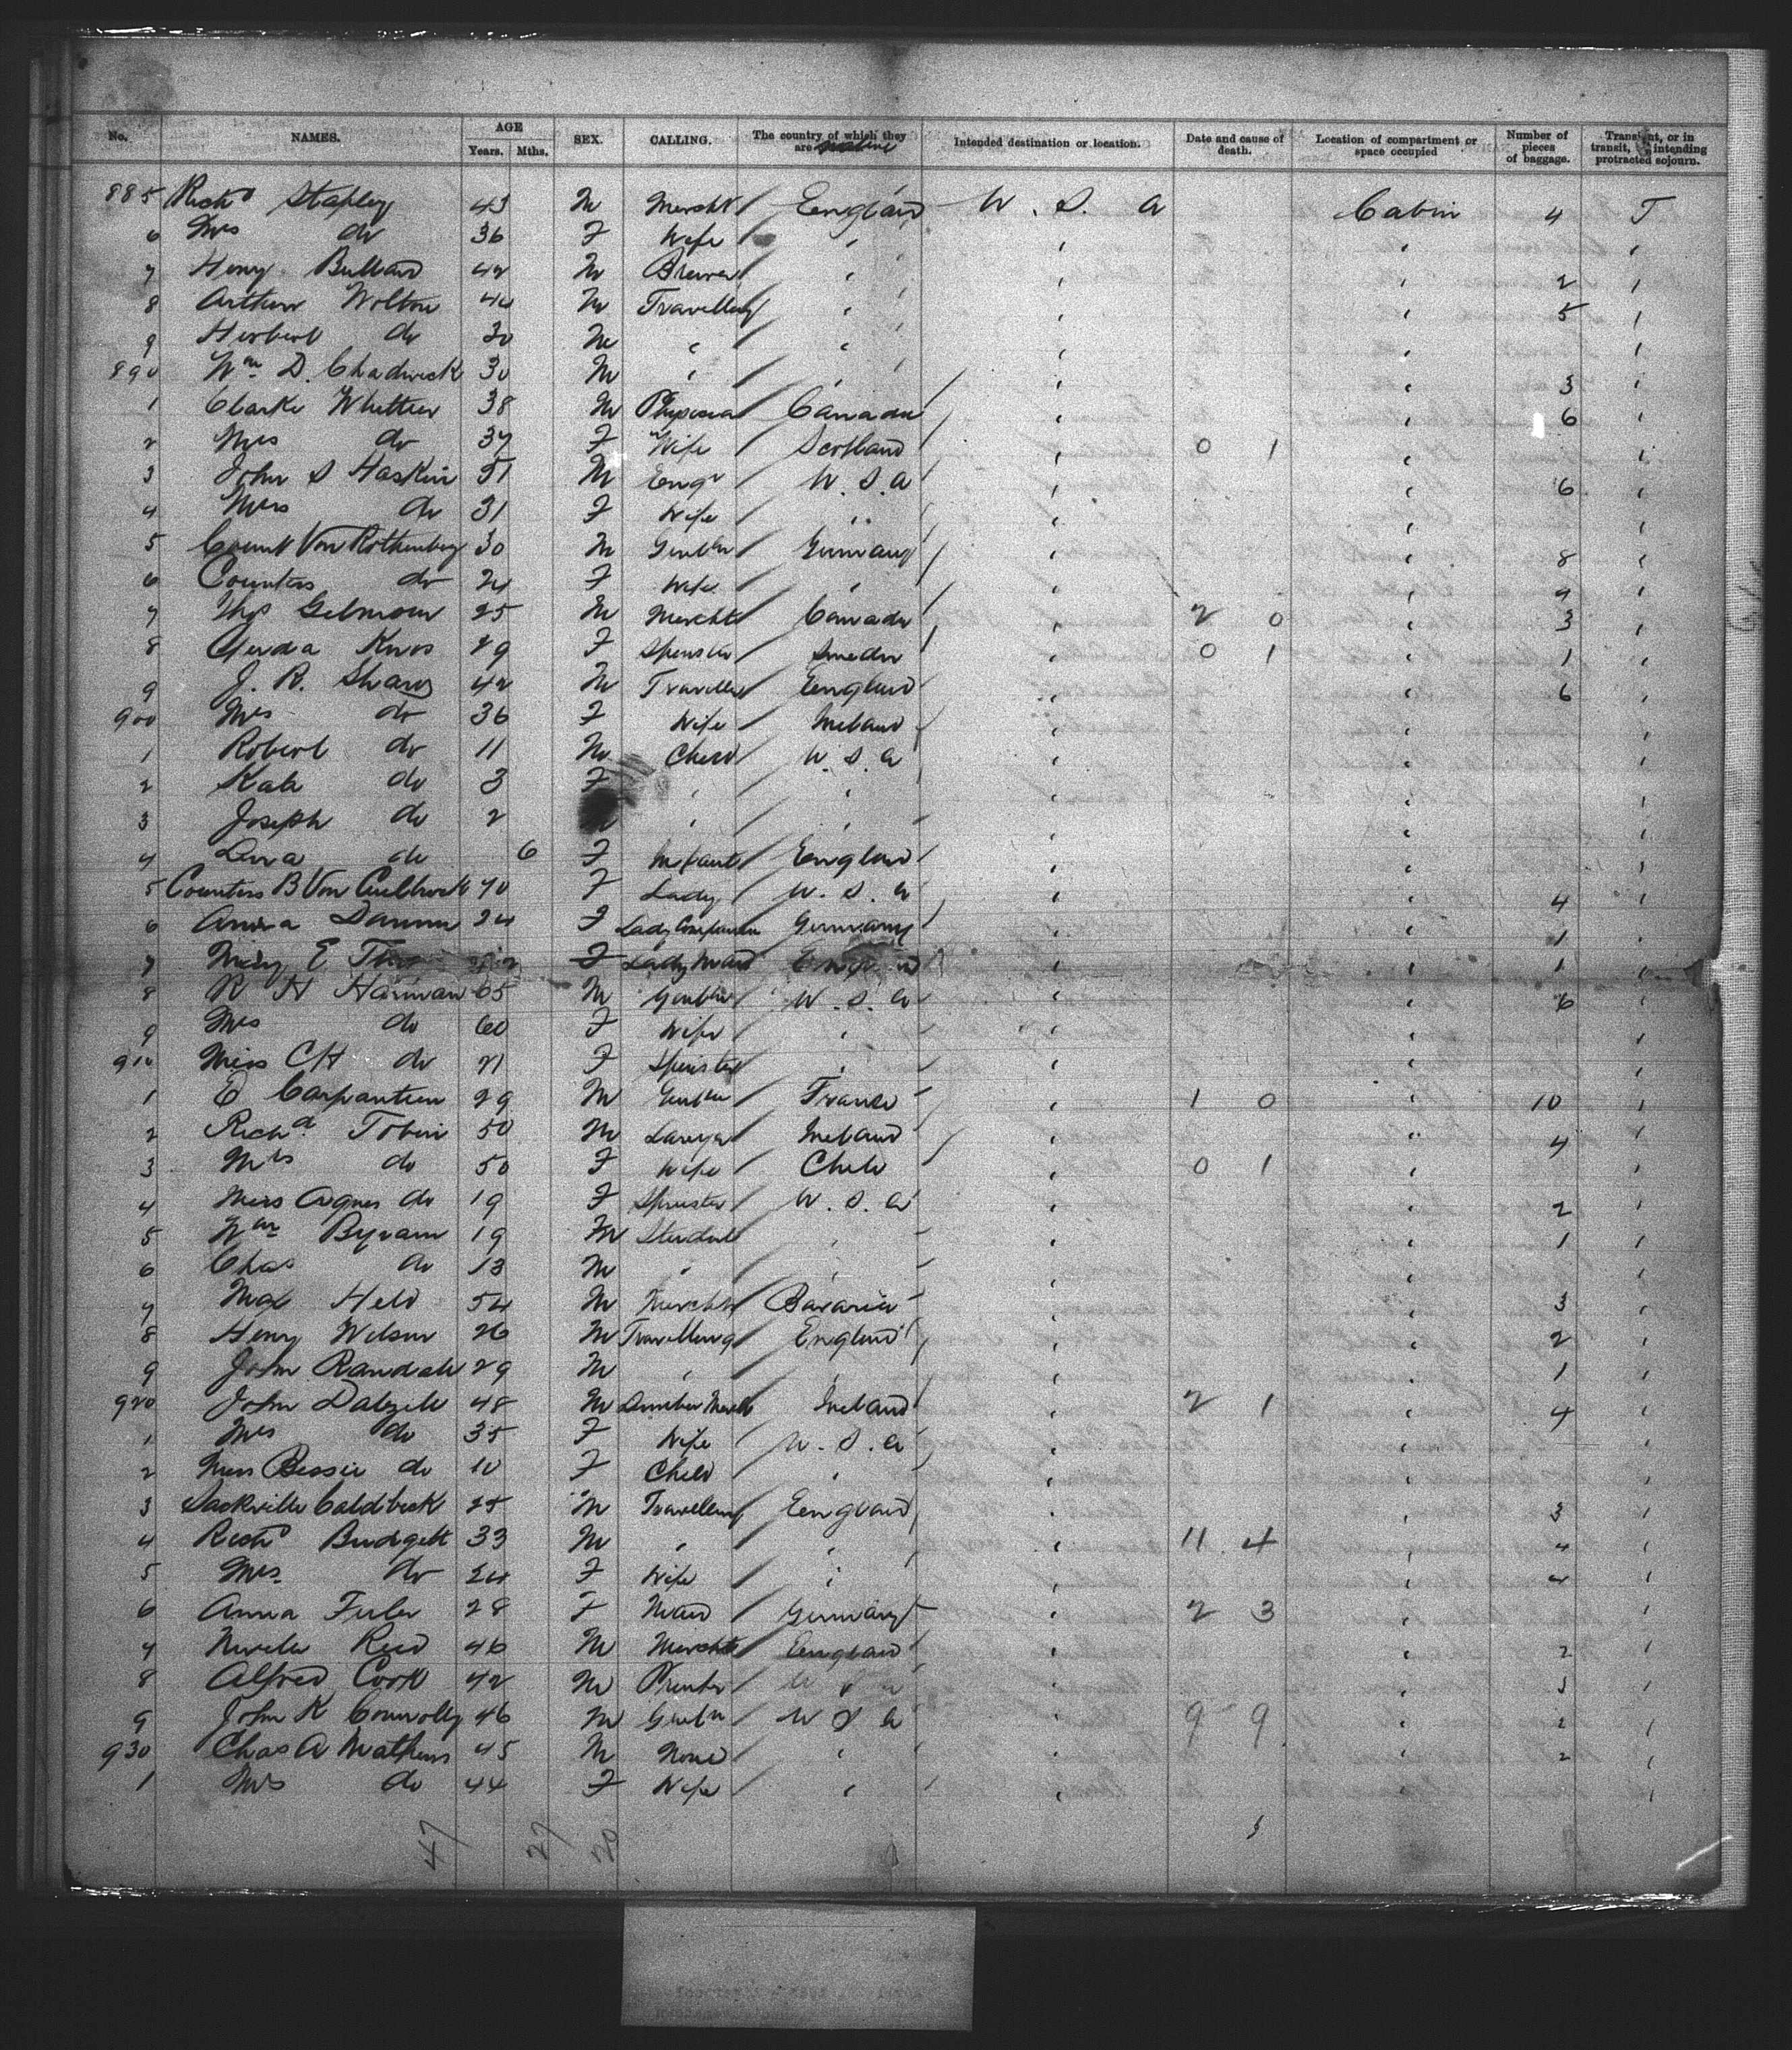 No. NAMES. AGE Years. Mths. SEX. CALLING. The country of which they are native Intended destination or location. Date and cause of death. Location of compartment or space occupied Number of pieces of baggage. Transient, or in transit, or intending protracted sojourn.
885 Richd Stapley 43 M Mercht England U. S. A Cabin 4 T
6 Mrs do 36 F Wife " " " "
7 Heny Bullard 42 M Brewer " " " 2 "
8 Arthur Wolton 44 M Travelling " " " 5 "
9 Herbert do 30 M " " " " "
890 Wm D. Chadwick 30 M " " " " 3 "
1 Clarke Whittier 38 M Physician Canada " " 6 "
2 Mrs do 37 F Wife Scotland " 0 1 " "
3 John S Haskin 51 M Engr U. S. A " " 6 "
4 Mrs do 31 F Wife " " " "
5 Count Von Rothenberg 30 M Gentln Germany " " 8 "
6 Countess do 24 F Wife " " " 9 "
7 Thos Gilmour 25 M Mercht Canada " 2 0 " 3 "
8 Gerda Knos 29 F Spinster Sweden " 0 1 " 1 "
9 J. R. Sharp 42 M Traveller England " " 6 "
900 Mrs do 36 F Wife Ireland " " "
1 Robert do 11 M Child U. S. A " " "
2 Kate do 3 F " " " " "
3 Joseph do 2 M " " " " "
4 Lena do 6 F Infant England " " "
5 Countess B Von 40 F Lady U. S. A " " 4 "
6 Anna Damm 24 F Lady Companion Germany " " 1 "
7 Mary E F Lady Maid " " 1 "
8 R H Harman 65 M Gentln U. S. A " " 6 "
9 Mrs do 60 F Wife " " " "
910 Miss C H do 21 F Spinster " " " "
1 E Carpantien 29 M Gentln France " 1 0 " 10 "
2 Richd Tobin 50 M Lawyer Ireland " " 4 "
3 Mrs do 50 F Wife Chili " 0 1 " "
4 Miss Agnes do 19 F Spinster U. S. A " " 2 "
5 Wm Byram 19 M Student " " " 1 "
6 Chas do 13 M " " " " "
7 Max Held 54 M Mercht Bavaria " " 3 "
8 Heny Wilson 26 M Travelling England " " 2 "
9 John Randall 29 M " " " " 1 "
920 John Dalzell 48 M Lumber Mercht Ireland " 2 1 " 4 "
1 Mrs do 35 F Wife U. S. A " " "
2 Miss Bessie do 10 F Child " " " "
3 Sackville Caldbeck 25 M Travelling England " " 3 "
4 Richd Budgett 33 M " " " 11 4 " 4 "
5 Mrs. do 24 F Wife " " " "
6 Anna Feiler 28 F Maid Germany " 2 3 " "
7 Reid 46 M Mercht England " " 2 "
8 Alfred Cook 42 M Printer U S A " " 3 "
9 John K Connolly 46 M Gentn U S A " 9 9 " 2 "
930 Chas A Mathews 45 M None " " " 2 "
1 Mrs do 44 F Wife " " " "
47 27 20